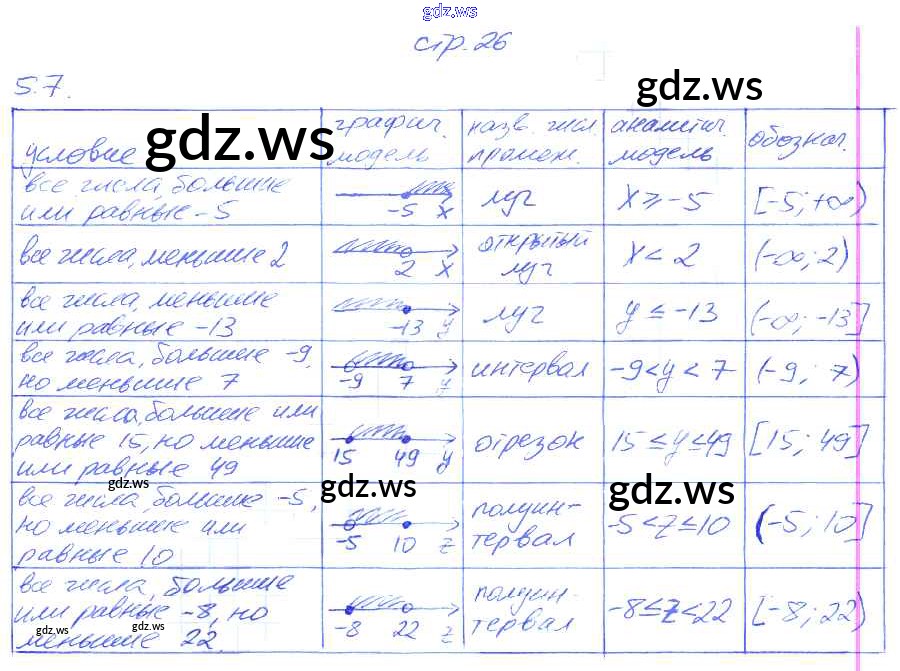 gdz.ws
стр. 26
gdz.ws
5.7.
gdz.ws
условие
график. модель
назв. числ. промеж.
аналитич. модель
обознач.
все числа, большие
или равные -5
-5 x
луч
x ≥ -5
[-5; +∞)
все числа, меньшие 2
2 x
открытый
луч
x < 2
(-∞; 2)
все числа, меньшие
или равные -13
-13 y
луч
y ≤ -13
(-∞; -13]
все числа, большие -9,
но меньшие 7
-9 7 y
интервал
-9 < y < 7
(-9; 7)
все числа, большие или
равные 15, но меньшие
или равные 49
15 49 y
отрезок
15 ≤ y ≤ 49
[15; 49]
gdz.ws
gdz.ws
gdz.ws
все числа, большие -5,
но меньшие или
равные 10
-5 10 z
полуин-
тервал
-5 < z ≤ 10
(-5; 10]
все числа, большие
или равные -8, но
меньшие 22.
-8 22 z
полуин-
тервал
-8 ≤ z < 22
[-8; 22)
gdz.ws
gdz.ws